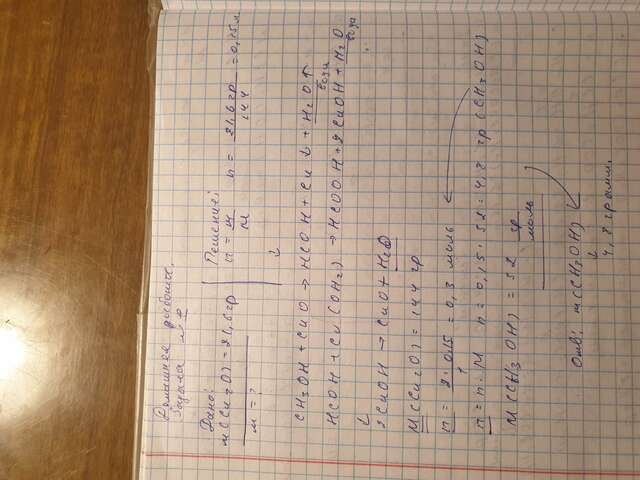 Домашняя работа.
Задача №2
Дано:
m(Cu2O) = 21,6 гр
m = ?
Решение:
n = m/M n = 21,6 гр/144 = 0,15 м
CH3OH + CuO → HCOH + Cu↓ + H2O↑
вода
HCOH + Cu(OH2) → HCOOH + 2CuOH + H2O
вода
↓
2CuOH → Cu2O + H2O
M(Cu2O) = 144 гр
n = 2·0,15 = 0,3 моль
m = n·M n = 0,15·32 = 4,8 гр (CH3OH)
M(CH3OH) = 32 гр/моль
Отв: m(CH3OH)
↓
4,8 грамм.